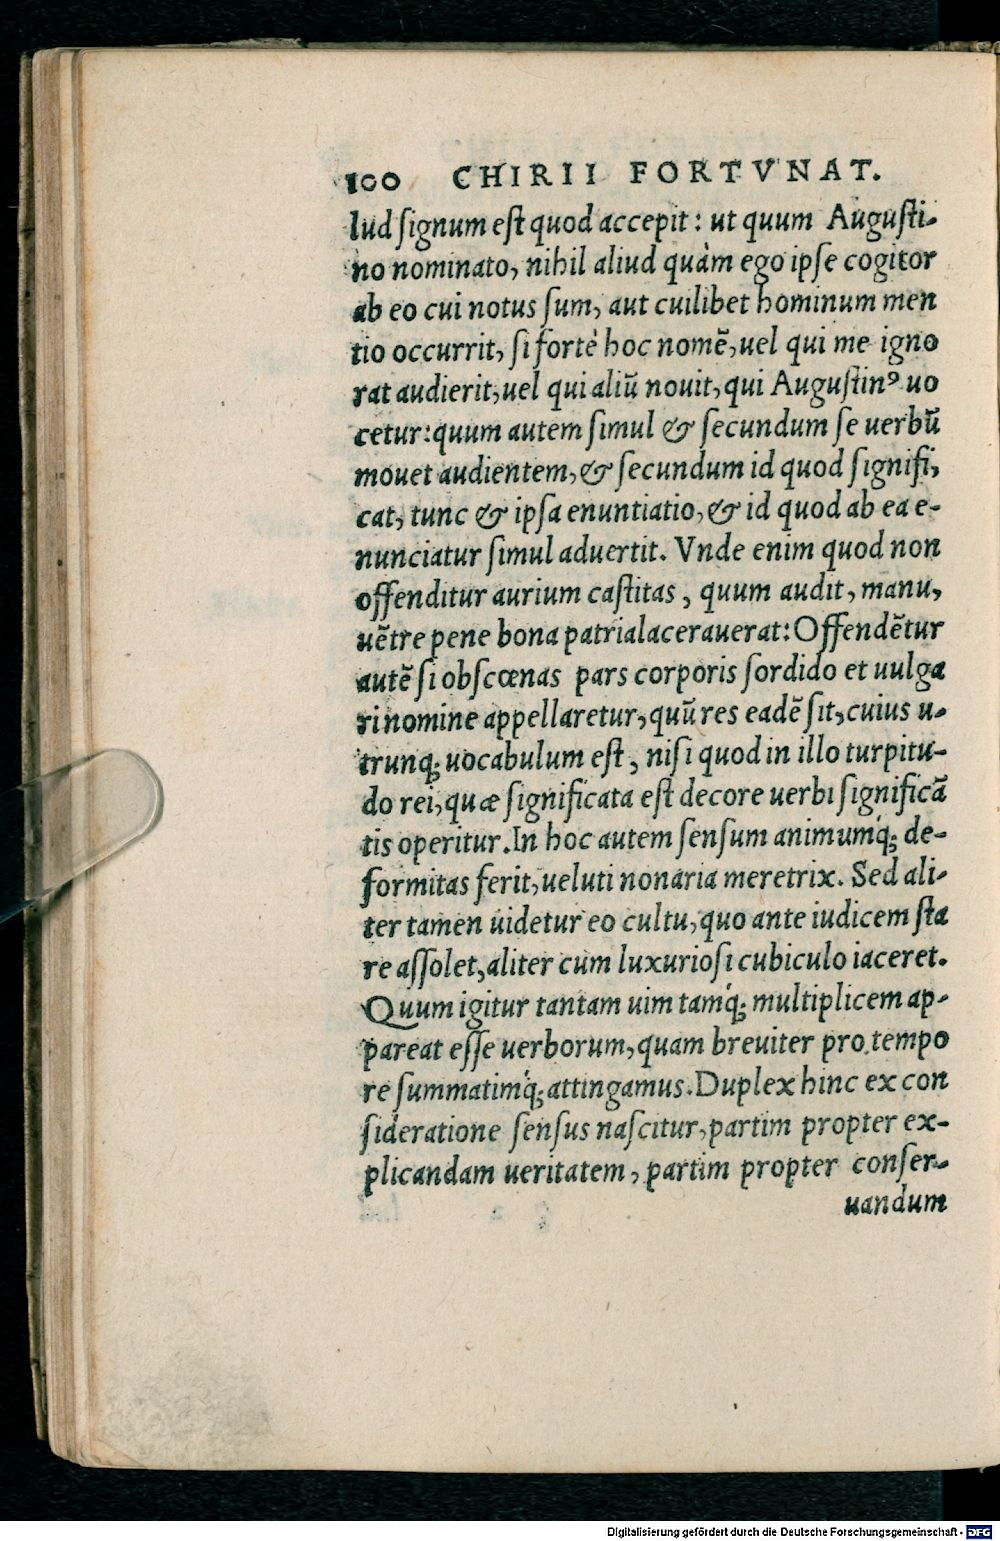 100 CHIRII FORTVNAT.
lud ſignum eſt quod accepit: ut quum Auguſti-
no nominato, nihil aliud quàm ego ipſe cogitor
ab eo cui notus ſum, aut cuilibet hominum men
tio occurrit, ſi fortè hoc nomẽ, uel qui me igno
rat audierit, uel qui aliũ nouit, qui Auguſtinꝰ uo
cetur: quum autem ſimul & ſecundum ſe uerbũ
mouet audientem, & ſecundum id quod ſignifi,
cat, tunc & ipſa enuntiatio, & id quod ab ea e-
nunciatur ſimul aduertit. Vnde enim quod non
offenditur aurium caſtitas, quum audit, manu,
uẽtre pene bona patria lacerauerat: Offendẽtur
autẽ ſi obſcœnas pars corporis ſordido et uulga
ri nomine appellaretur, quũ res eadẽ ſit, cuius u-
trunq; uocabulum eſt, niſi quod in illo turpitu-
do rei, quæ ſignificata eſt decore uerbi ſignificã
tis operitur. In hoc autem ſenſum animumq́; de-
formitas ferit, ueluti nonaria meretrix. Sed ali-
ter tamen uidetur eo cultu, quo ante iudicem ſta
re aſſolet, aliter cum luxurioſi cubiculo iaceret.
Quum igitur tantam uim tamq́; multiplicem ap-
pareat eſſe uerborum, quam breuiter pro tempo
re ſummatimq́; attingamus. Duplex hinc ex con
ſideratione ſenſus naſcitur, partim propter ex-
plicandam ueritatem, partim propter conſer-
uandum
Digitalisierung gefördert durch die Deutsche Forschungsgemeinschaft - DFG